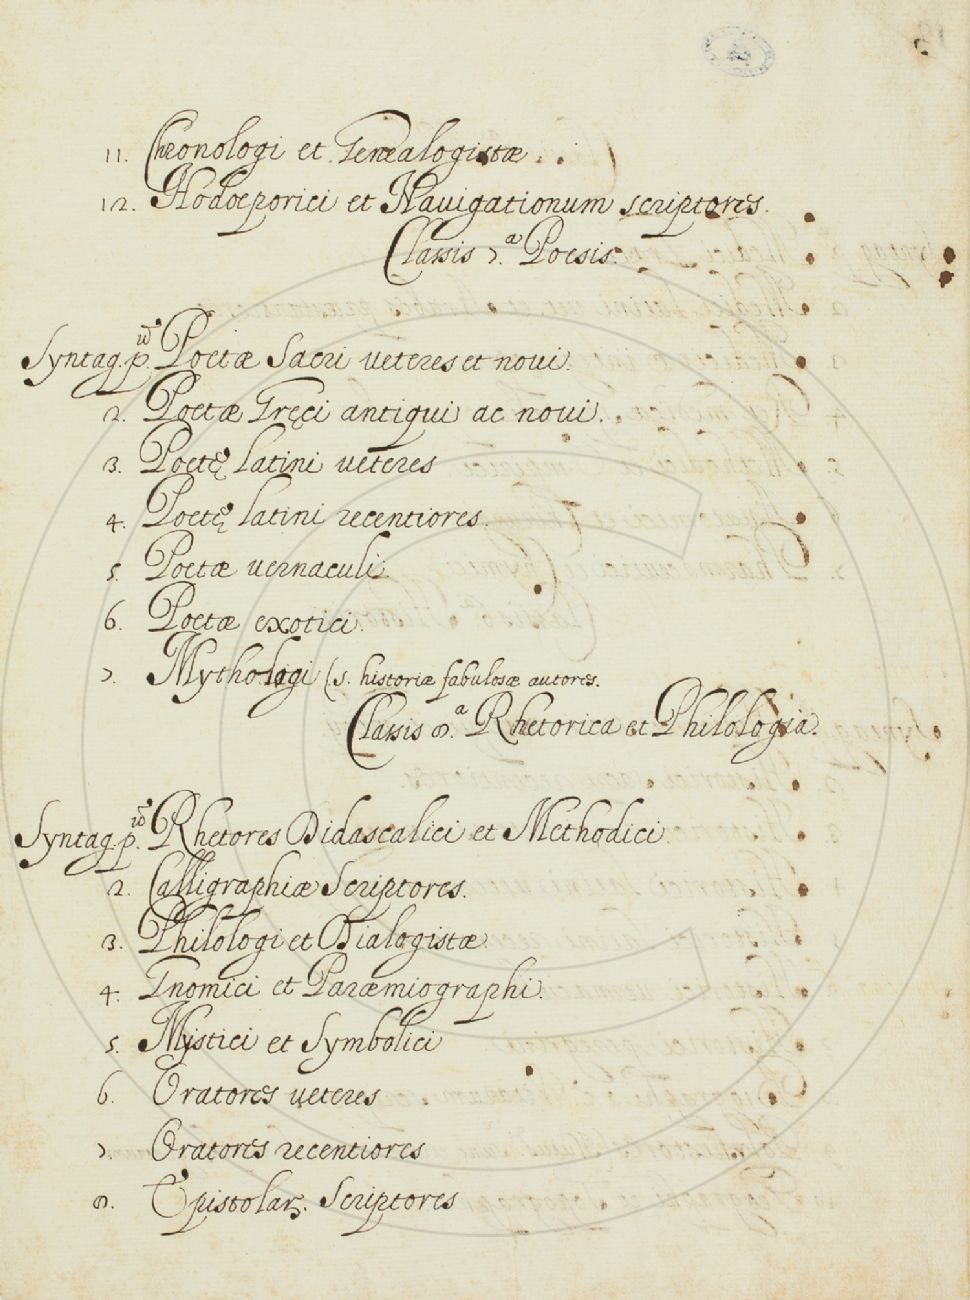 11. Chronologi et Genealogistæ.
12. Hodoeporici et Navigationum scriptores.
Classis 7.ª Poesis.
Syntag. p.ũ Poetæ Sacri veteres et novi.
2. Poetæ Gręci antiqui ac novi.
3. Poetę latini veteres
4. Poetę latini recentiores.
5. Poetæ vernaculi.
6. Poetæ exotici.
7. Mythologi (s. historiæ fabulosæ autores.
Classis 8.ª Rhetorica et Philologia.
Syntag. p.ũ Rhetores Didascalici et Methodici.
2. Calligraphiæ Scriptores.
3. Philologi et Dialogistæ.
4. Gnomici et Paræmiographi.
5. Mystici et Symbolici
6. Oratores veteres
7. Oratores recentiores
8. Epistolar. Scriptores